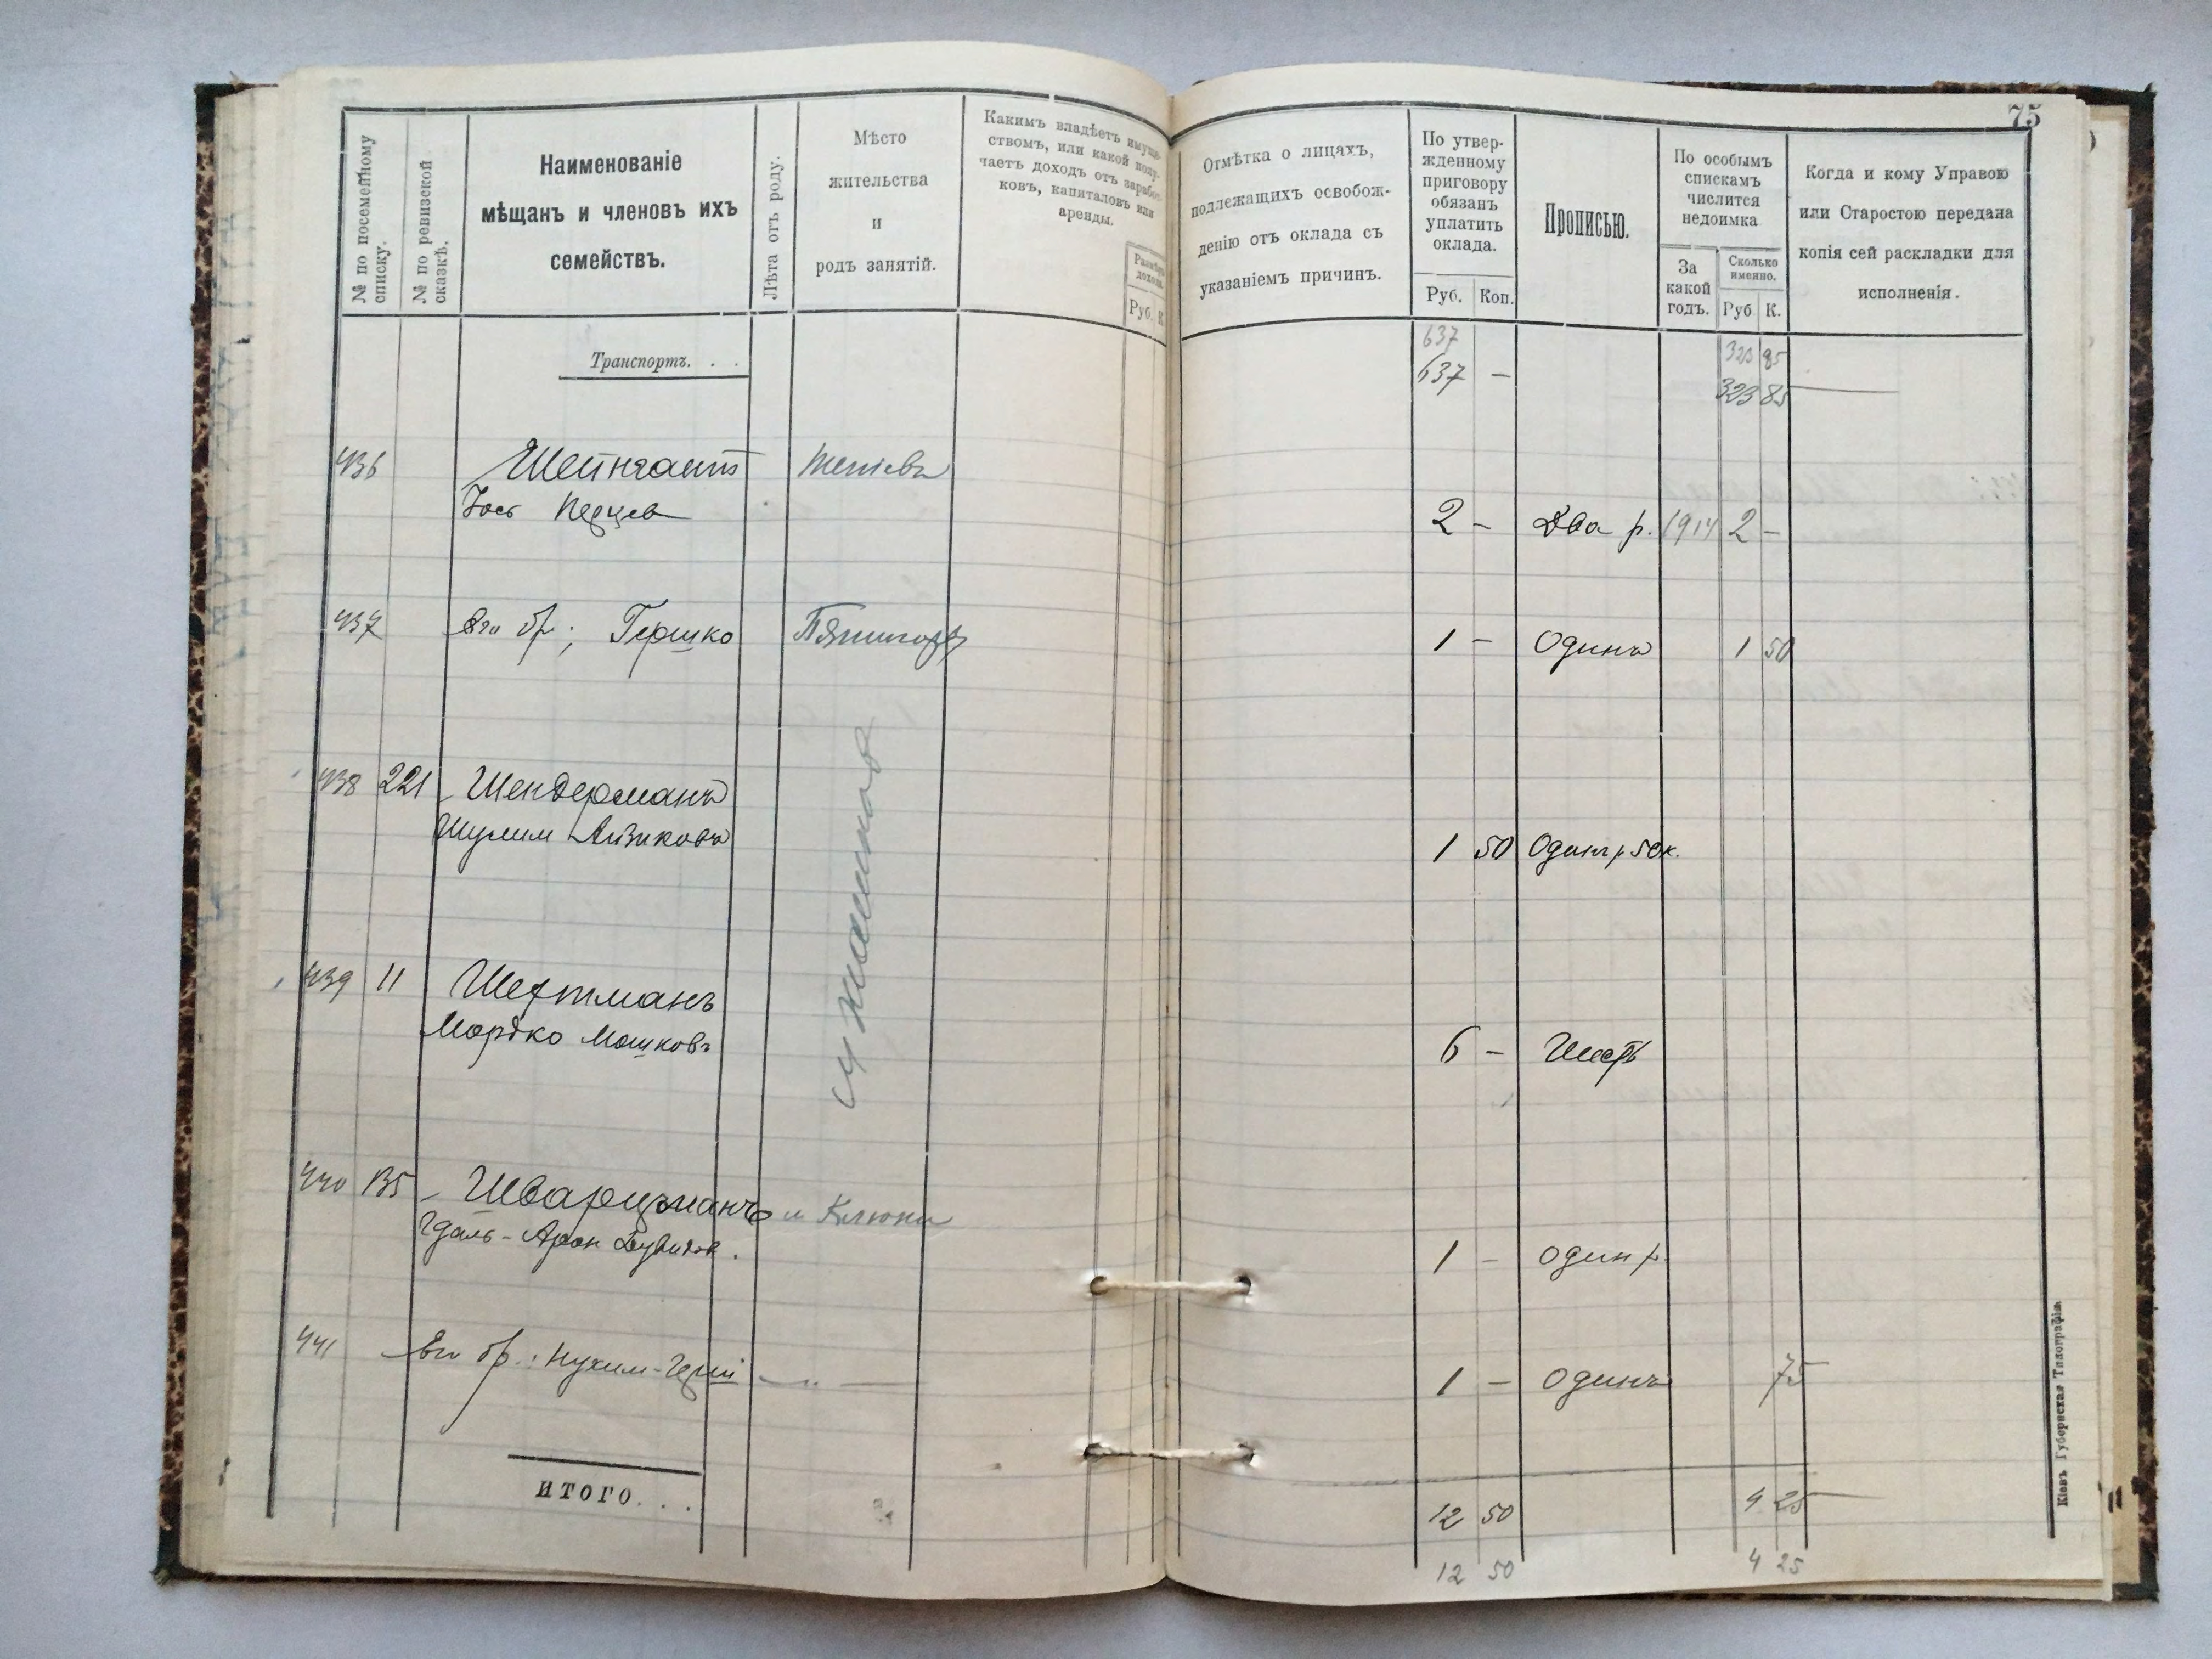 75
№ по посемейному списку.
№ по ревизской сказкѣ.
Наименованіе
мѣщанъ и членовъ ихъ
семействъ.
Лѣта отъ роду.
Мѣсто
жительства
и
родъ занятій.
Какимъ владѣетъ имуще-
ствомъ, или какой полу-
чаетъ доходъ отъ заработ-
ковъ, капиталовъ или
аренды.
Размѣръ
дохода.
Руб. К.
Отмѣтка о лицахъ,
подлежащихъ освобож-
денію отъ оклада съ
указаніемъ причинъ.
По утвер-
жденному
приговору
обязанъ
уплатить
оклада.
Руб. Коп.
Прописью.
По особымъ
спискамъ
числится
недоимка
За
какой
годъ.
Сколько
именно.
Руб К.
Когда и кому Управою
или Старостою передана
копія сей раскладки для
исполненія.
637 323 85
Транспортъ. . . 637 — 323 85
436 Шейнгаит
Іось Перцев 2 — Два р. 1914 2 —
437 Его бр.; Гершко Пятигоры 1 — Одинъ 1 50
438 221 Шендерманъ
Шулим Айзиковъ 1 50 Одинъ р 50 к.
439 11 Шехтманъ
Мордко Мошковъ 6 — Шесть
440 135 Шварцманъ
Арон Дувидов. 1 — один р.
441 Его бр.: Нухим-Герш — „ — 1 — одинъ 75
ИТОГО. . . 12 50 4 25
12 50 4 25
Кіевъ Губернская Типографія.